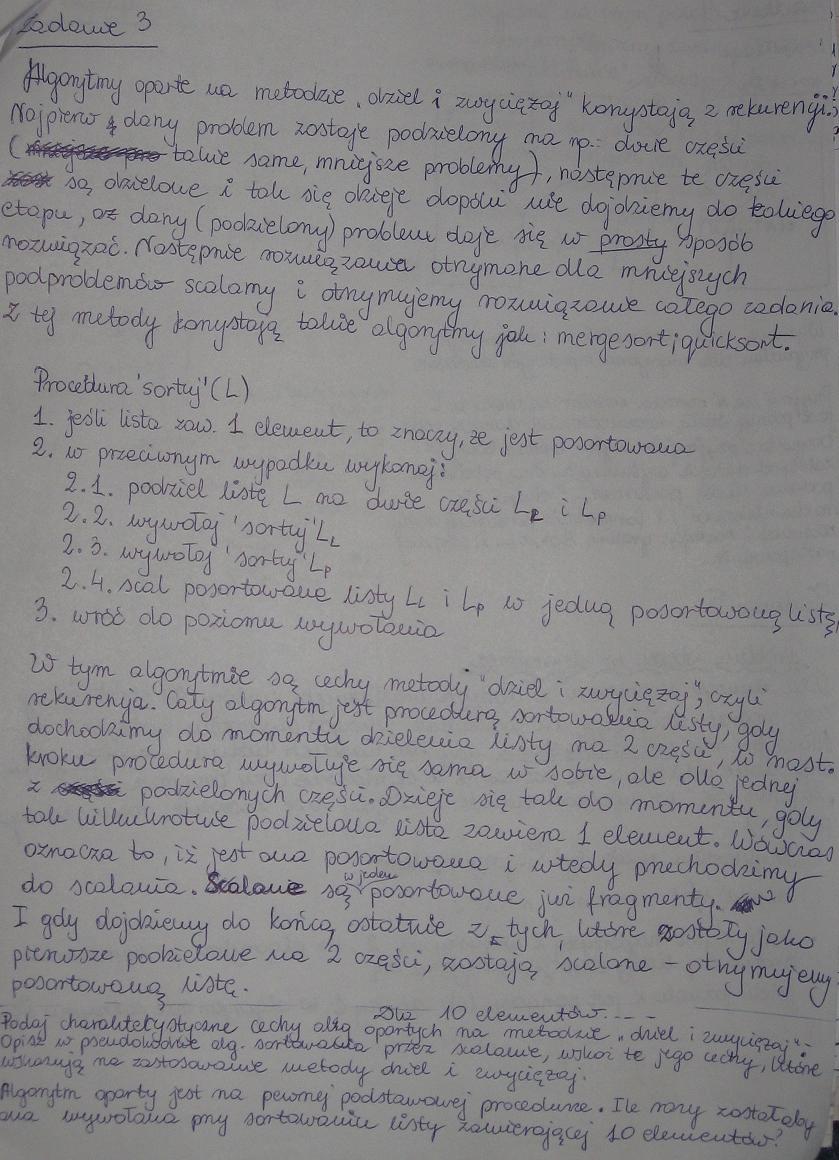 Zadanie 3
Algorytmy oparte na metodzie „dziel i zwyciężaj" korzystają z rekurencji.
Najpierw dany problem zostaje podzielony na np.: dwie części
(takie same, mniejsze problemy), następnie te części
są dzielone i tak się dzieje dopóki nie dojdziemy do takiego
etapu, aż dany (podzielony) problem daje się w prosty sposób
rozwiązać. Następnie rozwiązania otrzymane dla mniejszych
podproblemów scalamy i otrzymujemy rozwiązanie całego zadania.
Z tej metody korzystają takie algorytmy jak: mergesort i quicksort.
Procedura 'sortuj' (L)
1. jeśli lista zaw. 1 element, to znaczy, że jest posortowana
2. w przeciwnym wypadku wykonaj:
2.1. podziel listę L na dwie części LL i LP
2.2. wywołaj 'sortuj' LL
2.3. wywołaj 'sortuj' LP
2.4. scal posortowane listy LL i LP w jedną posortowaną listę
3. wróć do poziomu wywołania
W tym algorytmie są cechy metody "dziel i zwyciężaj", czyli
rekurencja. Cały algorytm jest procedurą sortowania listy, gdy
dochodzimy do momentu dzielenia listy na 2 części, w nast.
kroku procedura wywołuje się sama w sobie, ale dla jednej
z podzielonych części. Dzieje się tak do momentu, gdy
tak kilkukrotnie podzielona lista zawiera 1 element. Wówczas
oznacza to, iż jest ona posortowana i wtedy przechodzimy
do scalania. Scalane są w jeden posortowane już fragmenty.
I gdy dojdziemy do końca, ostatnie z tych, które zostały jako
pierwsze podzielone na 2 części, zostają scalone - otrzymujemy
posortowaną listę.
Dla 10 elementów....
Podaj charakterystyczne cechy alg opartych na metodzie „dziel i zwyciężaj"-
Opisz w pseudokodzie alg. sortowania przez scalanie, wskaż te jego cechy, które
wskazują na zastosowanie metody dziel i zwyciężaj.
Algorytm oparty jest na pewnej podstawowej procedurze. Ile razy zostałaby
ona wywołana przy sortowaniu listy zawierającej 10 elementów?